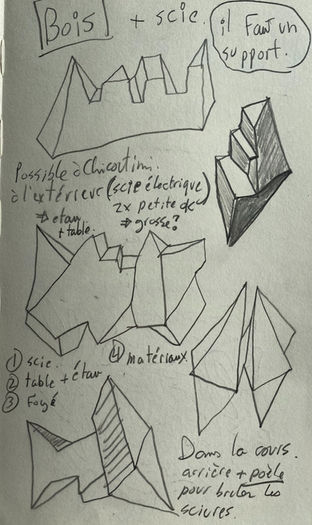 Bois + scie.
il Faut un
support.
Possible à Chicoutimi.
à l'extérieur (scie électrique)
⇒ étau 2x petite
+ table. ⇒ grosse?
① scie. ④ matériaux
② table + étau
③ Foyé
Dans la cours.
arrière + poêle
pour bruler les
sciures